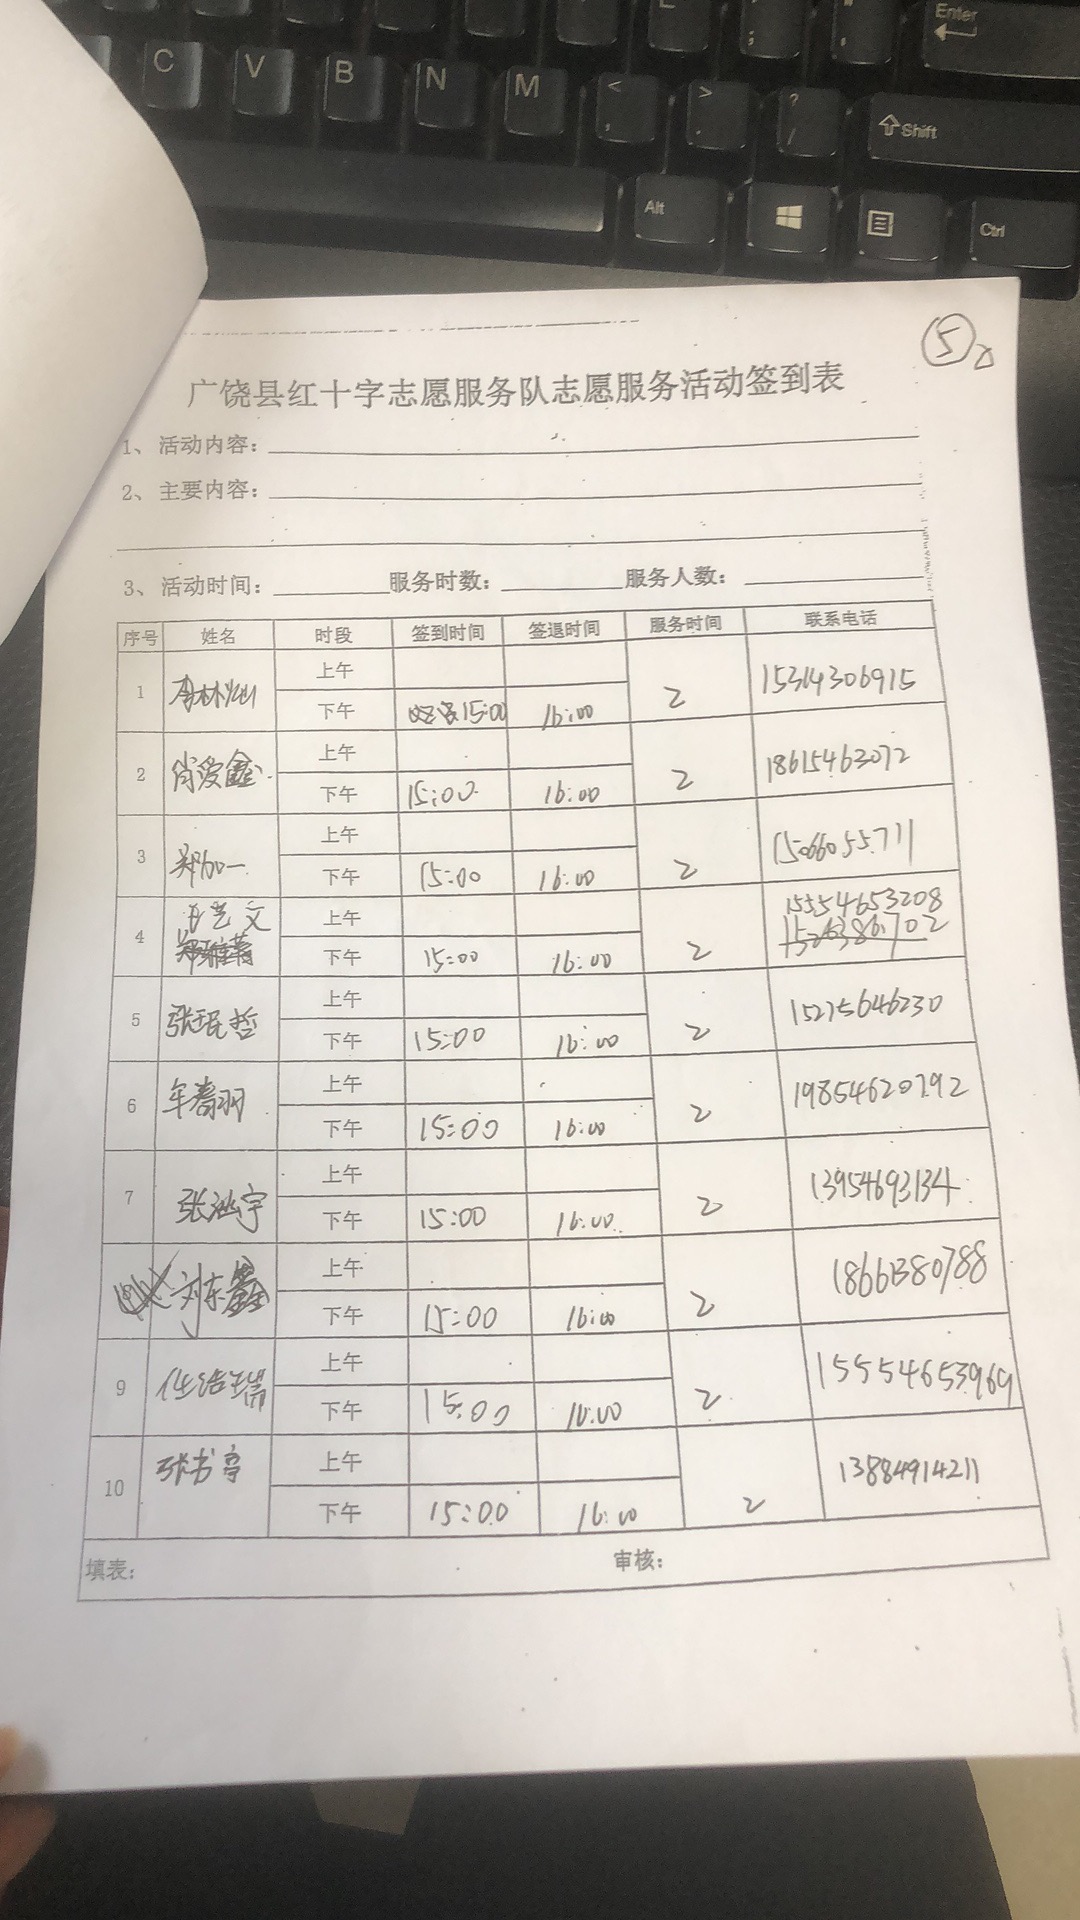 Enter
C V B N M < , > . ? / Shift
Alt Ctrl
5
广饶县红十字志愿服务队志愿服务活动签到表
1、活动内容：
2、主要内容：
3、活动时间： 服务时数： 服务人数：
序号 姓名 时段 签到时间 签退时间 服务时间 联系电话
1 上午
下午 15:00 16:00 2 15314306915
2 肖爱鑫 上午
下午 15:00 16:00 2 18615463072
3 郑加一 上午
下午 15:00 16:00 2 15066055711
4 艺文 上午 15554653208
下午 15:00 16:00 2 15263861702
5 张珉哲 上午
下午 15:00 16:00 2 15275646230
6 牟春羽 上午
下午 15:00 16:00 2 19854620792
7 张涵宇 上午
下午 15:00 16:00 2 13954693134
刘东鑫 上午
下午 15:00 16:00 2 18661380788
9 任洁瑞 上午
下午 15:00 16:00 2 15554653969
10 张书亭 上午
下午 15:00 16:00 2 13884914211
填表： 审核：